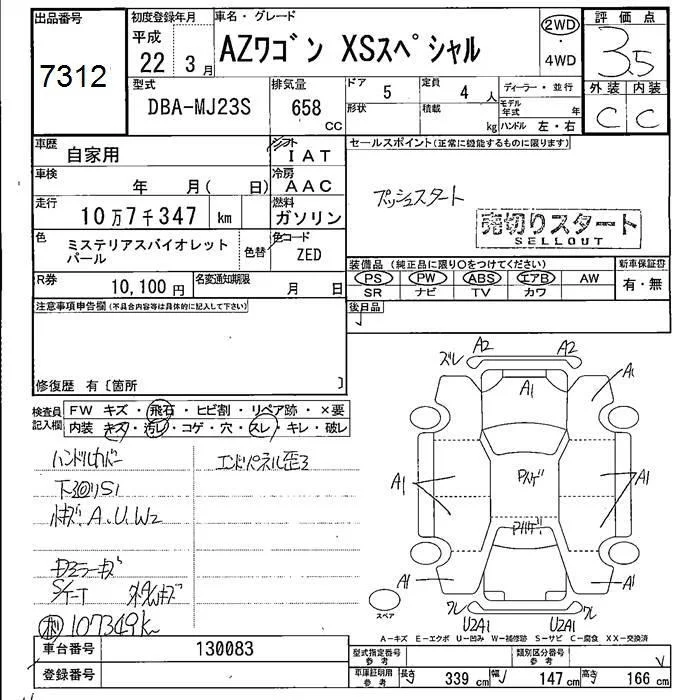 出品番号 初度登録年月 車名・グレード 評価点
7312 平成 22年 3月 AZワゴン XSスペシャル 2WD・4WD 3.5
型式 排気量 ドア 5 定員 4人 ディーラー・並行 外装 内装
DBA-MJ23S 658 CC 形状 積載 kg モデル年式 年 ハンドル 左・右 C C
車歴 自家用 シフト IAT セールスポイント(正常に機能するものに限ります)
車検 年 月( 日) 冷房 AAC プッシュスタート
走行 10万7千347 km 燃料 ガソリン 売切りスタート
SELLOUT
色 ミステリアスバイオレットパール 色替 色コード ZED
装備品(純正品に限り○をつけてください) 新車保証書
PS PW ABS エアB AW 有・無
SR ナビ TV カワ
R券 10,100円 名変通知期限 月 日
後日品
注意事項申告欄(不具合内容等は具体的に記入して下さい)
修復歴 有〔箇所 〕
検査員記入欄 FW キズ・飛石・ヒビ割・リペア跡・×要
内装 キズ・汚レ・コゲ・穴・スレ・キレ・破レ
ハンドルカバー エンドパネル歪ミ
下回りS1
A.U.W2
ドアミラーキズ
107349k
ズレ A2 A2
A1 A1
A1 A1
A1 A1
U2A1 U2A1
スペア
A-キズ E-エクボ U-凹み W-補修跡 S-サビ C-腐食 XX-交換済
車台番号 130083 型式指定番号 参考 類別区分番号 参考
登録番号 車庫証明用 参考 長さ 339cm 幅 147cm 高さ 166cm